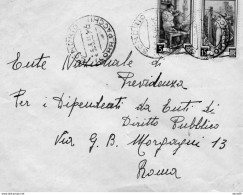 Ente Nazionale di
Previdenza
Per i Dipendenti da Enti di
Diritto Pubblico
Via G. B. Morgagni 13
Roma